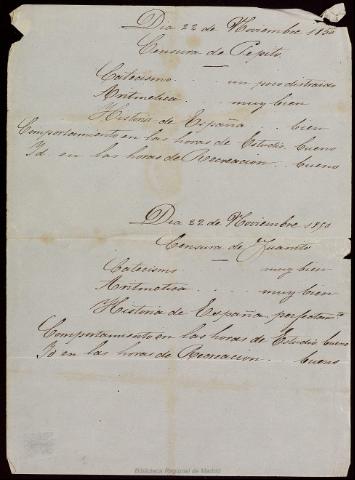 Dia 22 de Noviembre 1850
Censura de Pepito.
Catecismo.... un poco distraido
Aritmetica.... muy bien
Historia de España... bien
Comportamiento en las horas de Estudio bueno
Id en las horas de Recreacion.. bueno
Dia 22 de Noviembre 1850
Censura de Juanito
Catecismo muy bien
Aritmetica... muy bien
Historia de España perfectamte
Comportamiento en las horas de Estudio bueno
Id en las horas de Recreacion.. bueno
Biblioteca Regional de Madrid